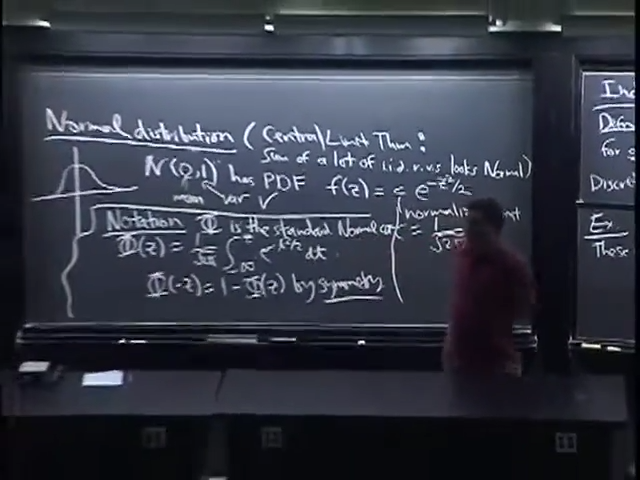 Normal distribution (Central Limit Thm:
sum of a lot of i.i.d. r.v.s looks Normal)
N(0,1) has PDF f(z) = c e^{-z²/2}
mean var ✓
normalizing
c = 1/√2π
Notation Φ is the standard Normal CDF
Φ(z) = 1/√2π ∫_{-∞}^{z} e^{-t²/2} dt
Φ(-z) = 1 - Φ(z) by symmetry
for
Discre
Ex.
These